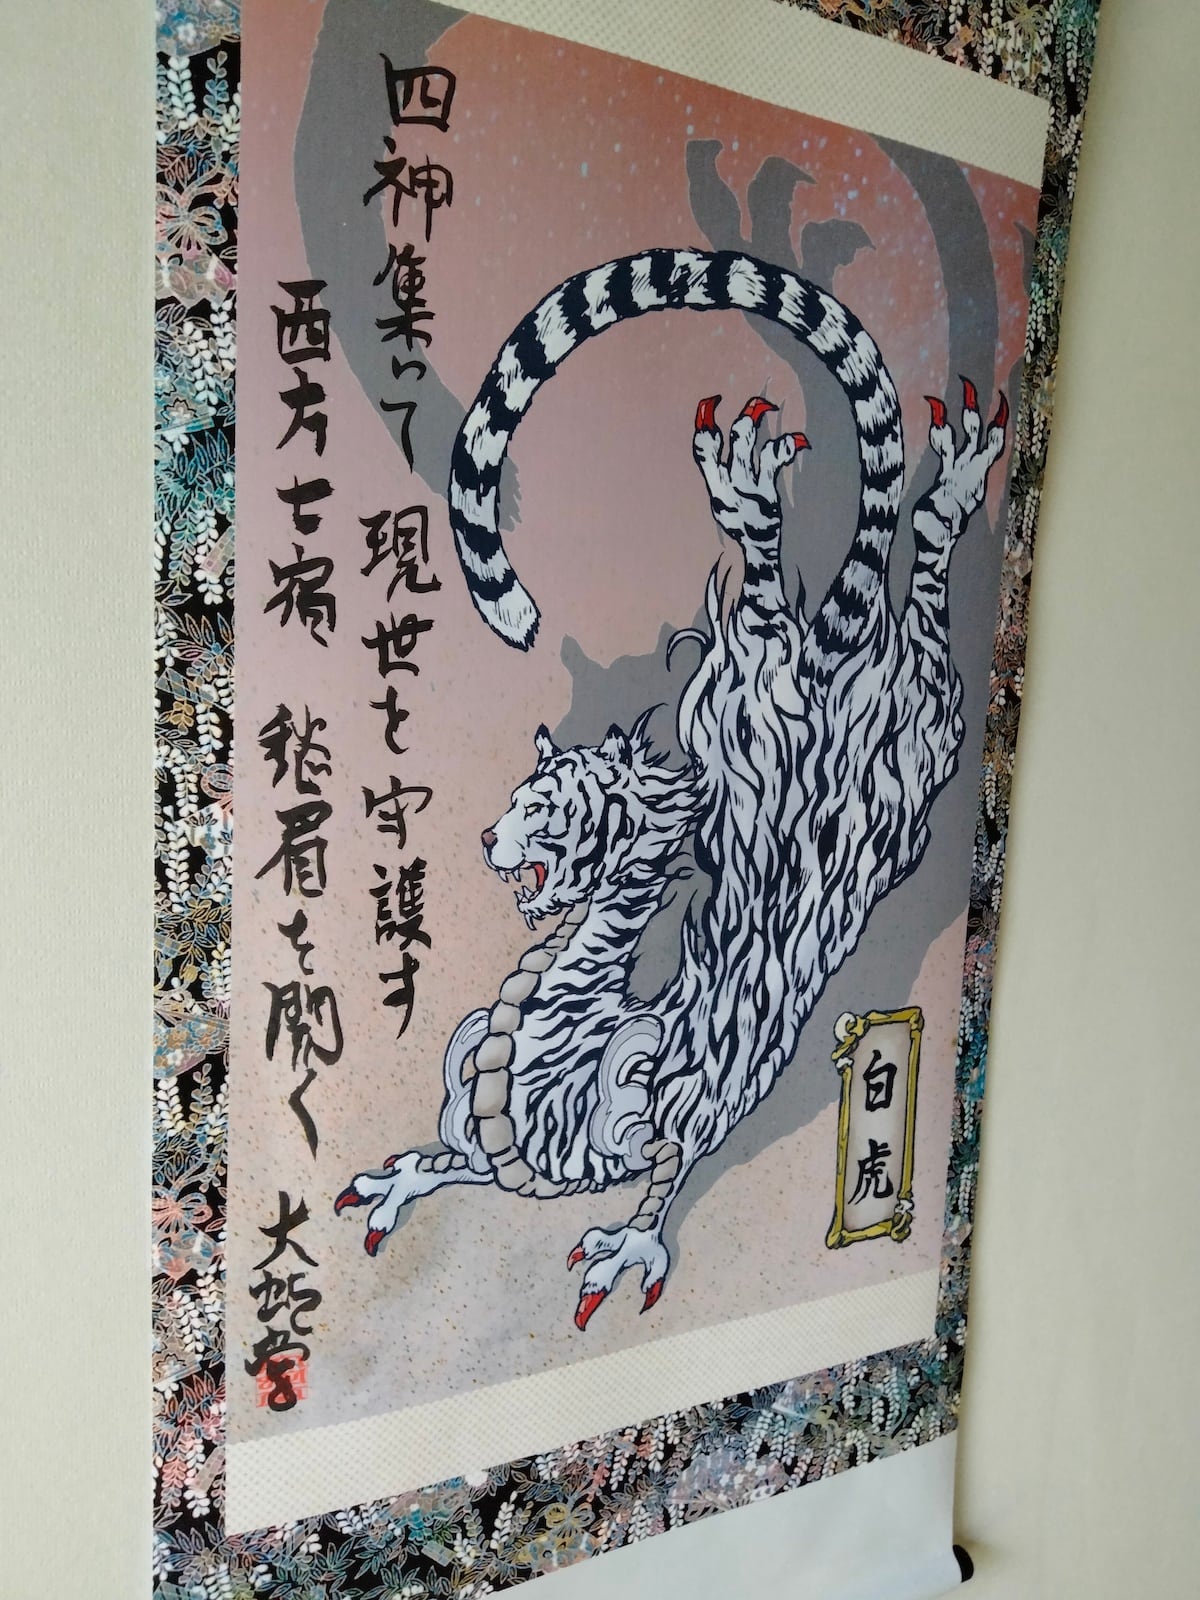 白虎
四神集いて 現世を守護す
西方七宿 愁眉を開く 大蛇堂